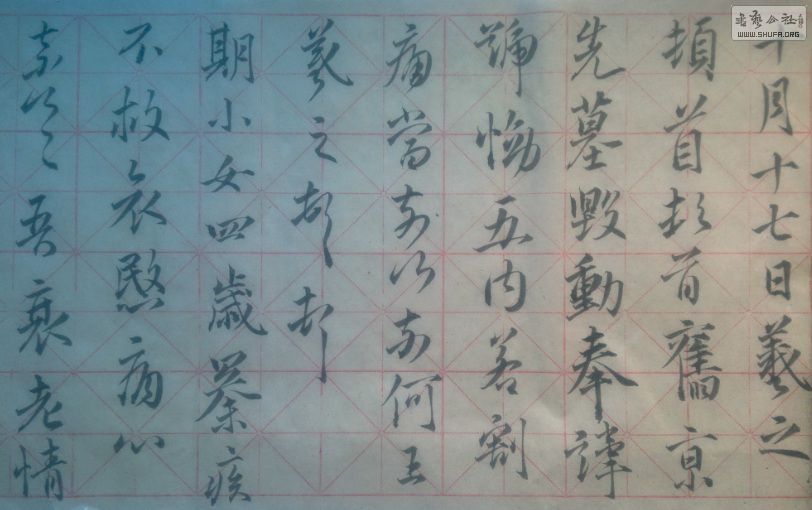 十月十七日羲之
頓首頓首舊京
先墓毀動奉諱
號慟五內若割
痛當奈何奈何王
羲之頓首
期小女四歲暴疾
不救哀愍痛心
奈何〻吾衰老情
書藝公社
WWW.SHUFA.ORG